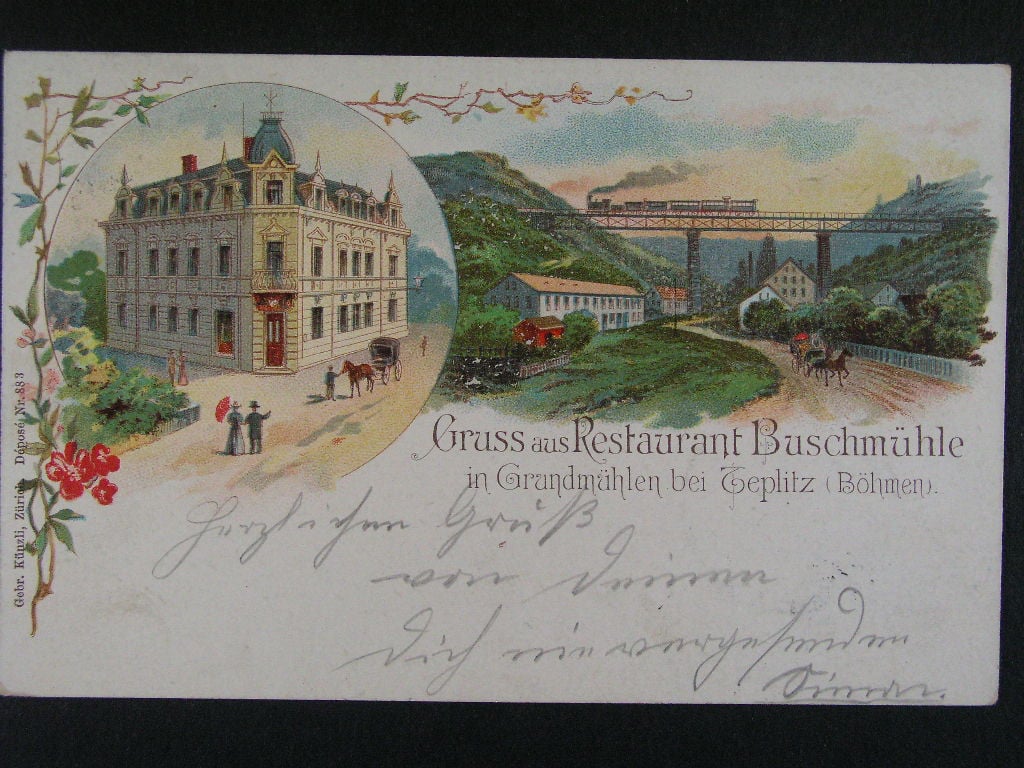 Gruss aus Restaurant Buschmühle
in Grundmühlen bei Teplitz (Böhmen).
Herzlichen Gruß
von Deinen
Dich nie vergessenden
Gebr. Künzli, Zürich Déposé Nr. 883